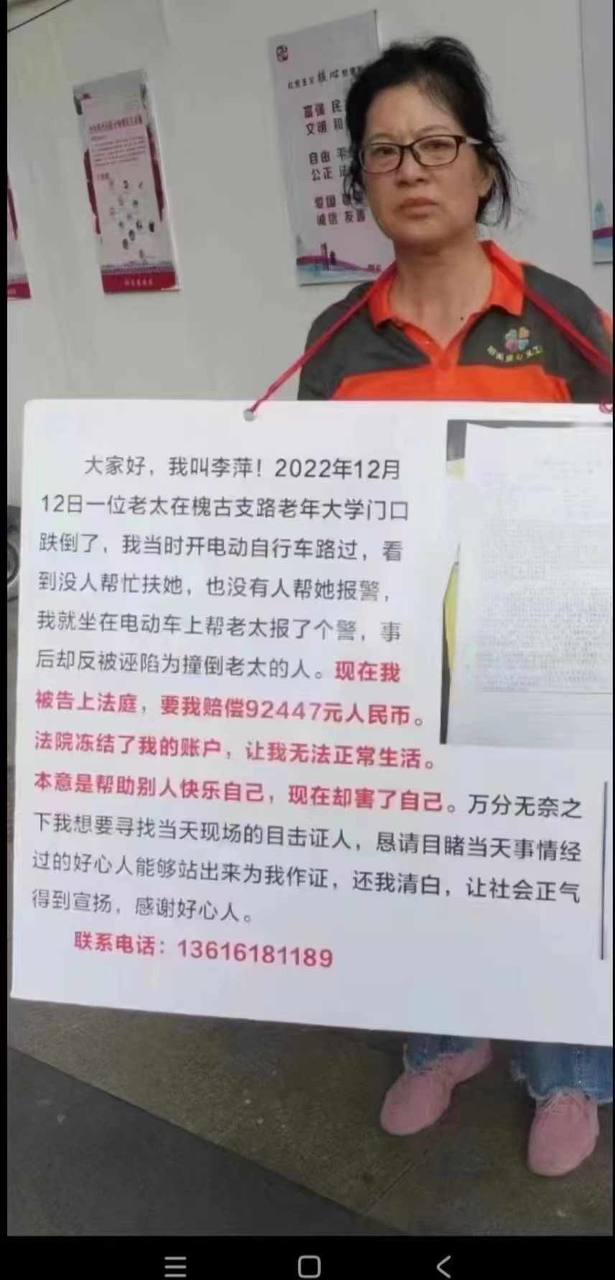 社会主义核心价值
富强 民
文明 和
自由 平
公正 法
爱国 敬
诚信 友善
大家好，我叫李萍！2022年12月
12日一位老太在槐古支路老年大学门口
跌倒了，我当时开电动自行车路过，看
到没人帮忙扶她，也没有人帮她报警，
我就坐在电动车上帮老太报了个警，事
后却反被诬陷为撞倒老太的人。现在我
被告上法庭，要我赔偿92447元人民币。
法院冻结了我的账户，让我无法正常生活。
本意是帮助别人快乐自己，现在却害了自己。万分无奈之
下我想要寻找当天现场的目击证人，恳请目睹当天事情经
过的好心人能够站出来为我作证，还我清白，让社会正气
得到宣扬，感谢好心人。
联系电话：13616181189